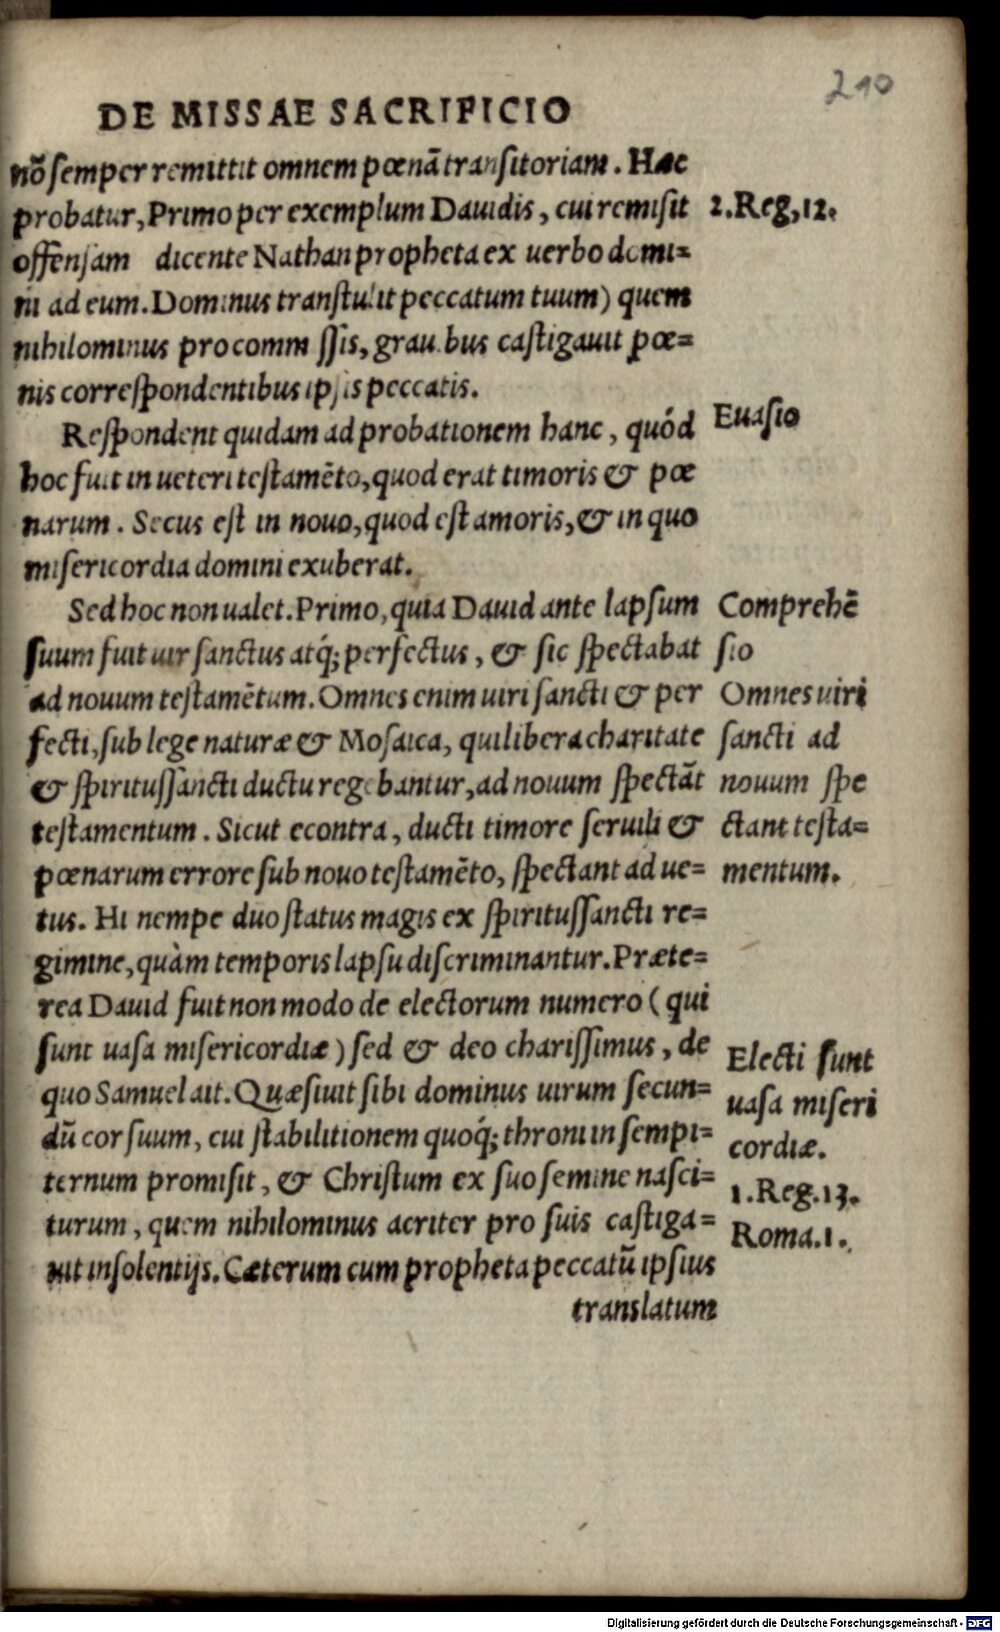 210
DE MISSAE SACRIFICIO
nõ semper remittit omnem pœnã transitoriam. Hæc
probatur, Primo per exemplum Dauidis, cui remisit
offensam dicente Nathan propheta ex uerbo domi=
ni ad eum. Dominus transtulit peccatum tuum) quem
nihilominus pro commissis, grauibus castigauit pœ=
nis correspondentibus ipsis peccatis.
Respondent quidam ad probationem hanc, quód
hoc fuit in ueteri testamẽto, quod erat timoris & pœ
narum. Secus est in nouo, quod est amoris, & in quo
misericordia domini exuberat.
Sed hoc non ualet. Primo, quia Dauid ante lapsum
suum fuit uir sanctus atq́; perfectus, & sic spectabat
ad nouum testamẽtum. Omnes enim uiri sancti & per
fecti, sub lege naturæ & Mosaica, qui libera charitate
& spiritussancti ductu regebantur, ad nouum spectãt
testamentum. Sicut econtra, ducti timore seruili &
pœnarum errore sub nouo testamẽto, spectant ad ue=
tus. Hi nempe duo status magis ex spiritussancti re=
gimine, quàm temporis lapsu discriminantur. Præte=
rea Dauid fuit non modo de electorum numero (qui
sunt uasa misericordiæ) sed & deo charissimus, de
quo Samuel ait. Quæsiuit sibi dominus uirum secun=
dũ cor suum, cui stabilitionem quoq́; throni in sempi=
ternum promisit, & Christum ex suo semine nasci=
turum, quem nihilominus acriter pro suis castiga=
uit insolentijs. Cæterum cum propheta peccatũ ipsius
translatum
2. Reg, 12.
Euasio
Comprehẽ
sio
Omnes uiri
sancti ad
nouum spe
ctant testa=
mentum.
Electi sunt
uasa miseri
cordiæ.
1. Reg. 13.
Roma. 1.
Digitalisierung gefördert durch die Deutsche Forschungsgemeinschaft - DFG